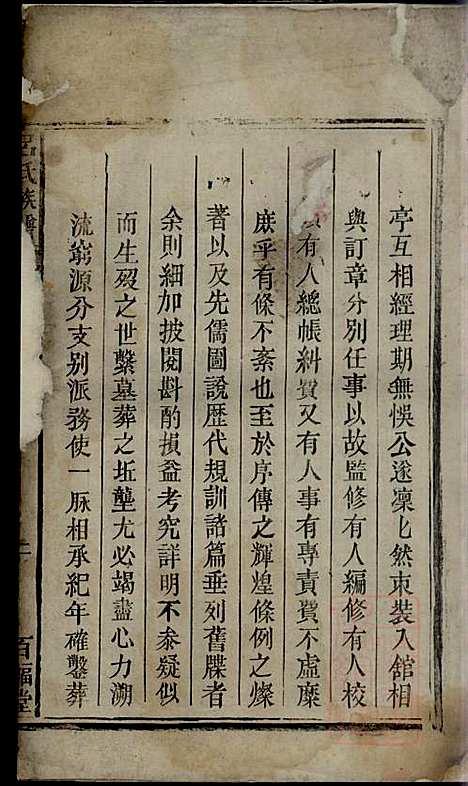 亭互相經理期無悞公遂凜凜然束裝入舘相
與訂章分別任事以故監修有人編修有人校
有人總帳糾貲又有人事有專責費不虛糜
庶乎有條不紊也至於序傳之輝煌條例之燦
著以及先儒圖說歷代規訓諸篇垂列舊牒者
余則細加披閱斟酌損益考究詳明不泰疑似
而生歿之世繫墓葬之坵壟尤必竭盡心力溯
流窮源分支别派務使一脉相承紀年確鑿葬
呂氏族譜
百福堂